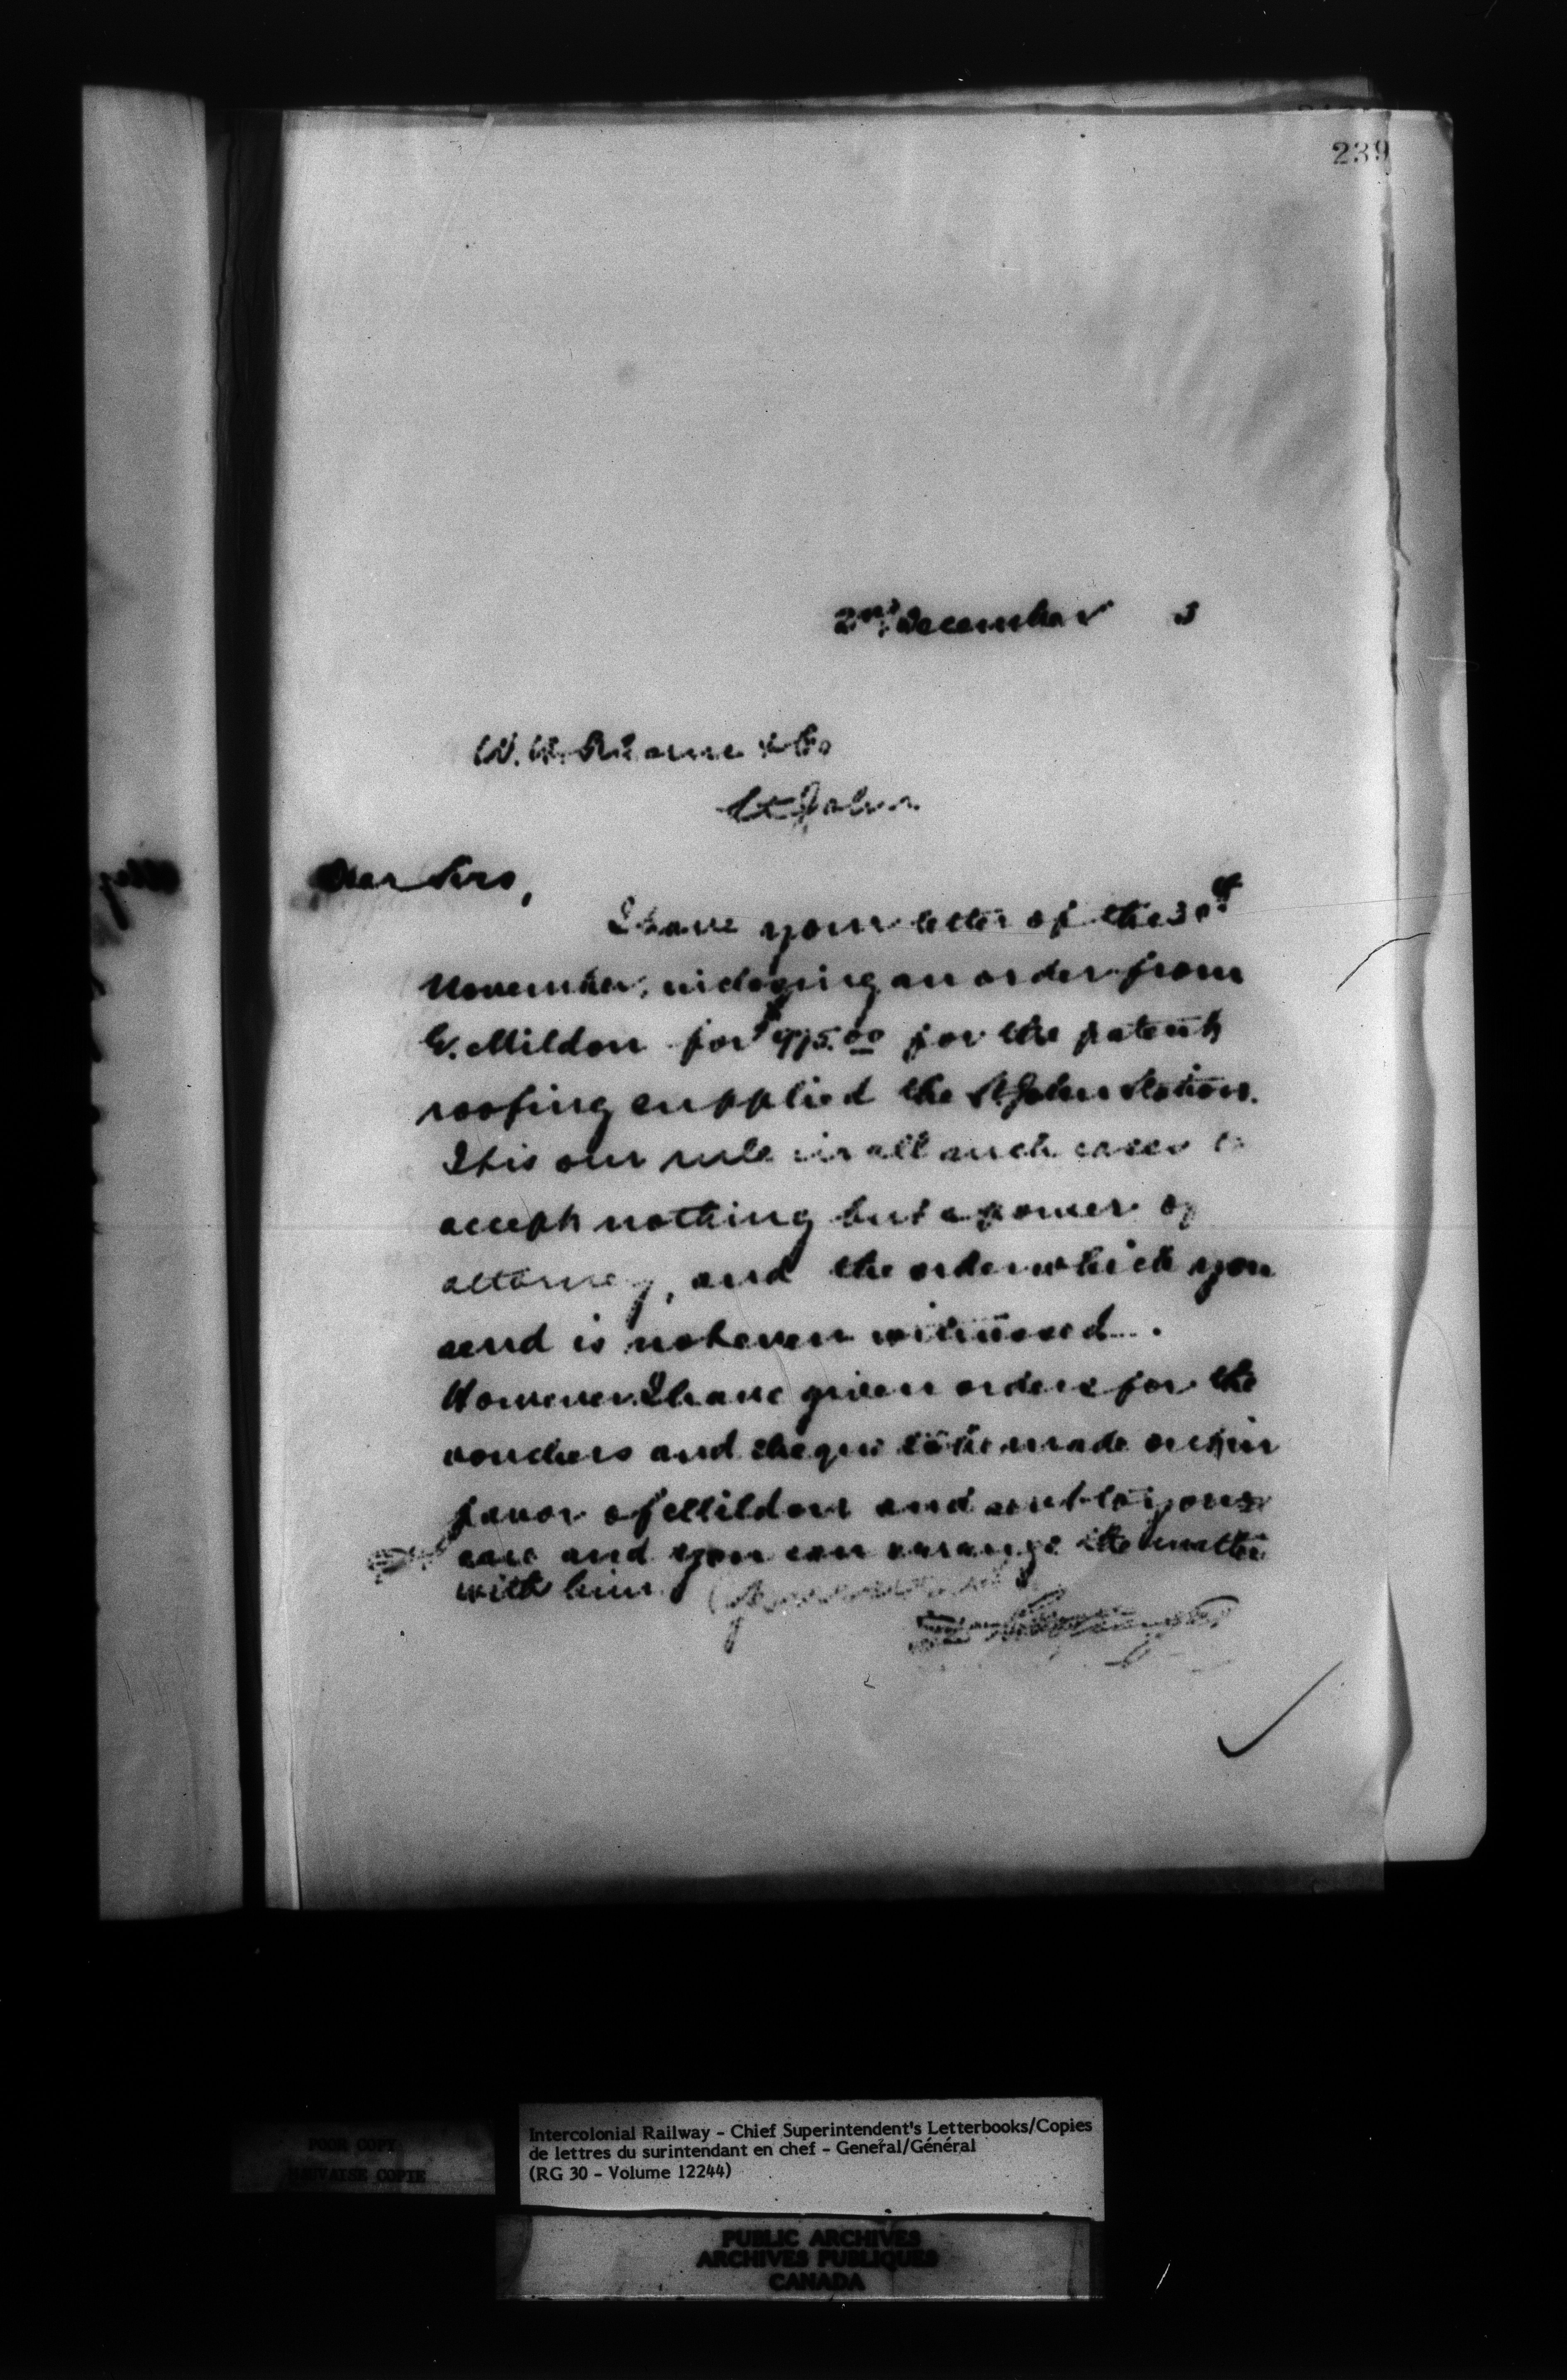 239
2nd December 3
W. H. & Co
St John
Dear Sirs,
I have your letter of the 30th
November, inclosing an order from
E. Mildon for $975.00 for the patent
roofing supplied the St John Station.
It is our rule in all such cases to
accept nothing but a power of
attorney, and the order which you
send is not even witnessed.
However I have given orders for the
vouchers and cheque to be made out in
favor of Mildon and sent to your
care and you can arrange the matter
with him.
POOR COPY
MAUVAISE COPIE
Intercolonial Railway - Chief Superintendent's Letterbooks/Copies
de lettres du surintendant en chef - General/Général
(RG 30 - Volume 12244)
PUBLIC ARCHIVES
ARCHIVES PUBLIQUES
CANADA